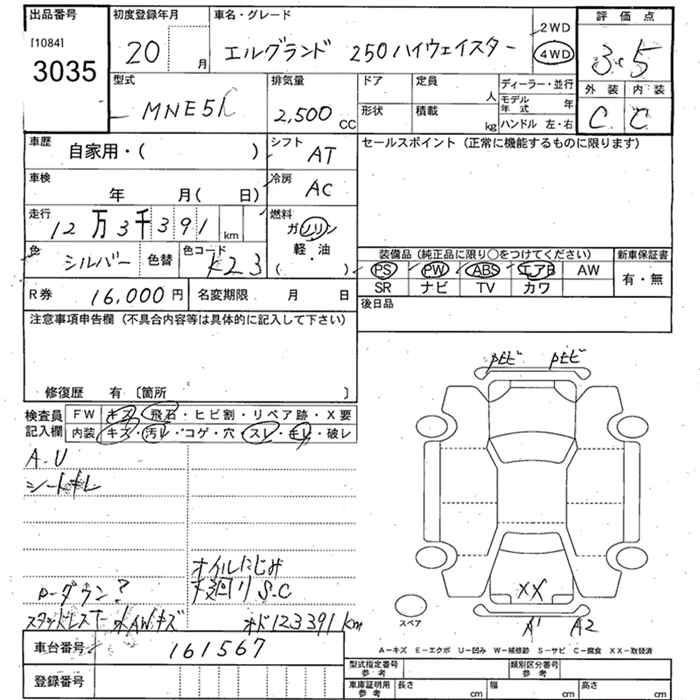 出品番号
[1084]
3035
初度登録年月
20 月
車名・グレード
エルグランド 250ハイウェイスター
2WD
4WD
評価点
3.5
外装 内装
C C
型式
MNE51
排気量
2,500 CC
ドア
定員
人
形状
積載
kg
ディーラー・並行
モデル年式 年
ハンドル 左・右
車歴
自家用・( )
シフト
AT
セールスポイント (正常に機能するものに限ります)
車検
年 月( 日)
冷房
AC
走行
12万3千391km
燃料
ガソリン
軽・油
( )
色
シルバー
色替
色コード
K23
装備品 (純正品に限り〇をつけてください)
新車保証書
PS PW ABS エアB AW
有・無
SR ナビ TV カワ
R券 16,000円
名変期限 月 日
後日品
注意事項申告欄 (不具合内容等は具体的に記入して下さい)
修復歴 有 〔箇所 〕
検査員記入欄
FW キズ・飛石・ヒビ割・リペア跡・X要
内装 キズ・汚レ・コゲ・穴 スレ・キレ・破レ
A.U
シートキレ
オイルにじみ
下廻りS.C
ローダウン?
スタッドレスT
AWキズ
オド123391km
pヒビ pヒビ
XX
A1 A2
スペア
A−キズ E−エクボ U−凹み W−補修跡 S−サビ C−腐食 XX−取替済
車台番号
161567
登録番号
型式指定番号
参考
類別区分番号
参考
車庫証明用
参考
長さ cm
幅 cm
高さ cm